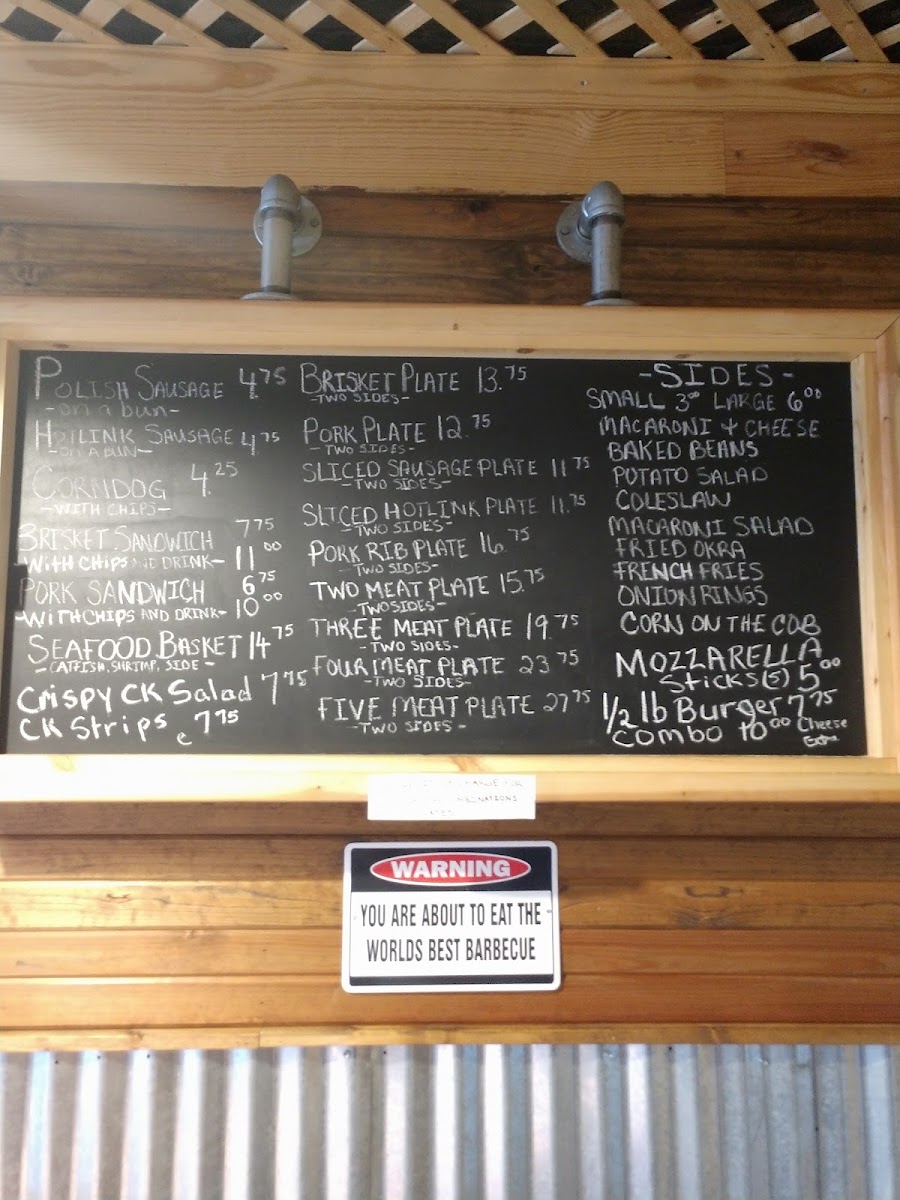 POLISH SAUSAGE 4.75
-on a bun-
HOTLINK SAUSAGE 4.75
-ON A BUN-
CORNDOG 4.25
-WITH CHIPS-
BRISKET SANDWICH 7.75
-WITH CHIPS AND DRINK- 11.00
PORK SANDWICH 6.75
-WITH CHIPS AND DRINK- 10.00
SEAFOOD BASKET 14.75
-CATFISH, SHRIMP, SIDE-
Crispy CK Salad 7.75
CK Strips 7.75
BRISKET PLATE 13.75
-TWO SIDES-
PORK PLATE 12.75
-TWO SIDES-
SLICED SAUSAGE PLATE 11.75
-TWO SIDES-
SLICED HOTLINK PLATE 11.75
-TWO SIDES-
PORK RIB PLATE 16.75
-TWO SIDES-
TWO MEAT PLATE 15.75
-TWO SIDES-
THREE MEAT PLATE 19.75
-TWO SIDES-
FOUR MEAT PLATE 23.75
-TWO SIDES-
FIVE MEAT PLATE 27.75
-TWO SIDES-
-SIDES-
SMALL 3.00 LARGE 6.00
MACARONI & CHEESE
BAKED BEANS
POTATO SALAD
COLESLAW
MACARONI SALAD
FRIED OKRA
FRENCH FRIES
ONION RINGS
CORN ON THE COB
MOZZARELLA
Sticks(5) 5.00
1/2 lb Burger 7.75
Combo 10.00 Cheese
WARNING
YOU ARE ABOUT TO EAT THE
WORLDS BEST BARBECUE